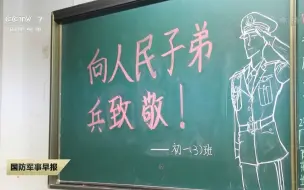 向人民子弟
兵致敬！
——初一(3)班
国防军事早报